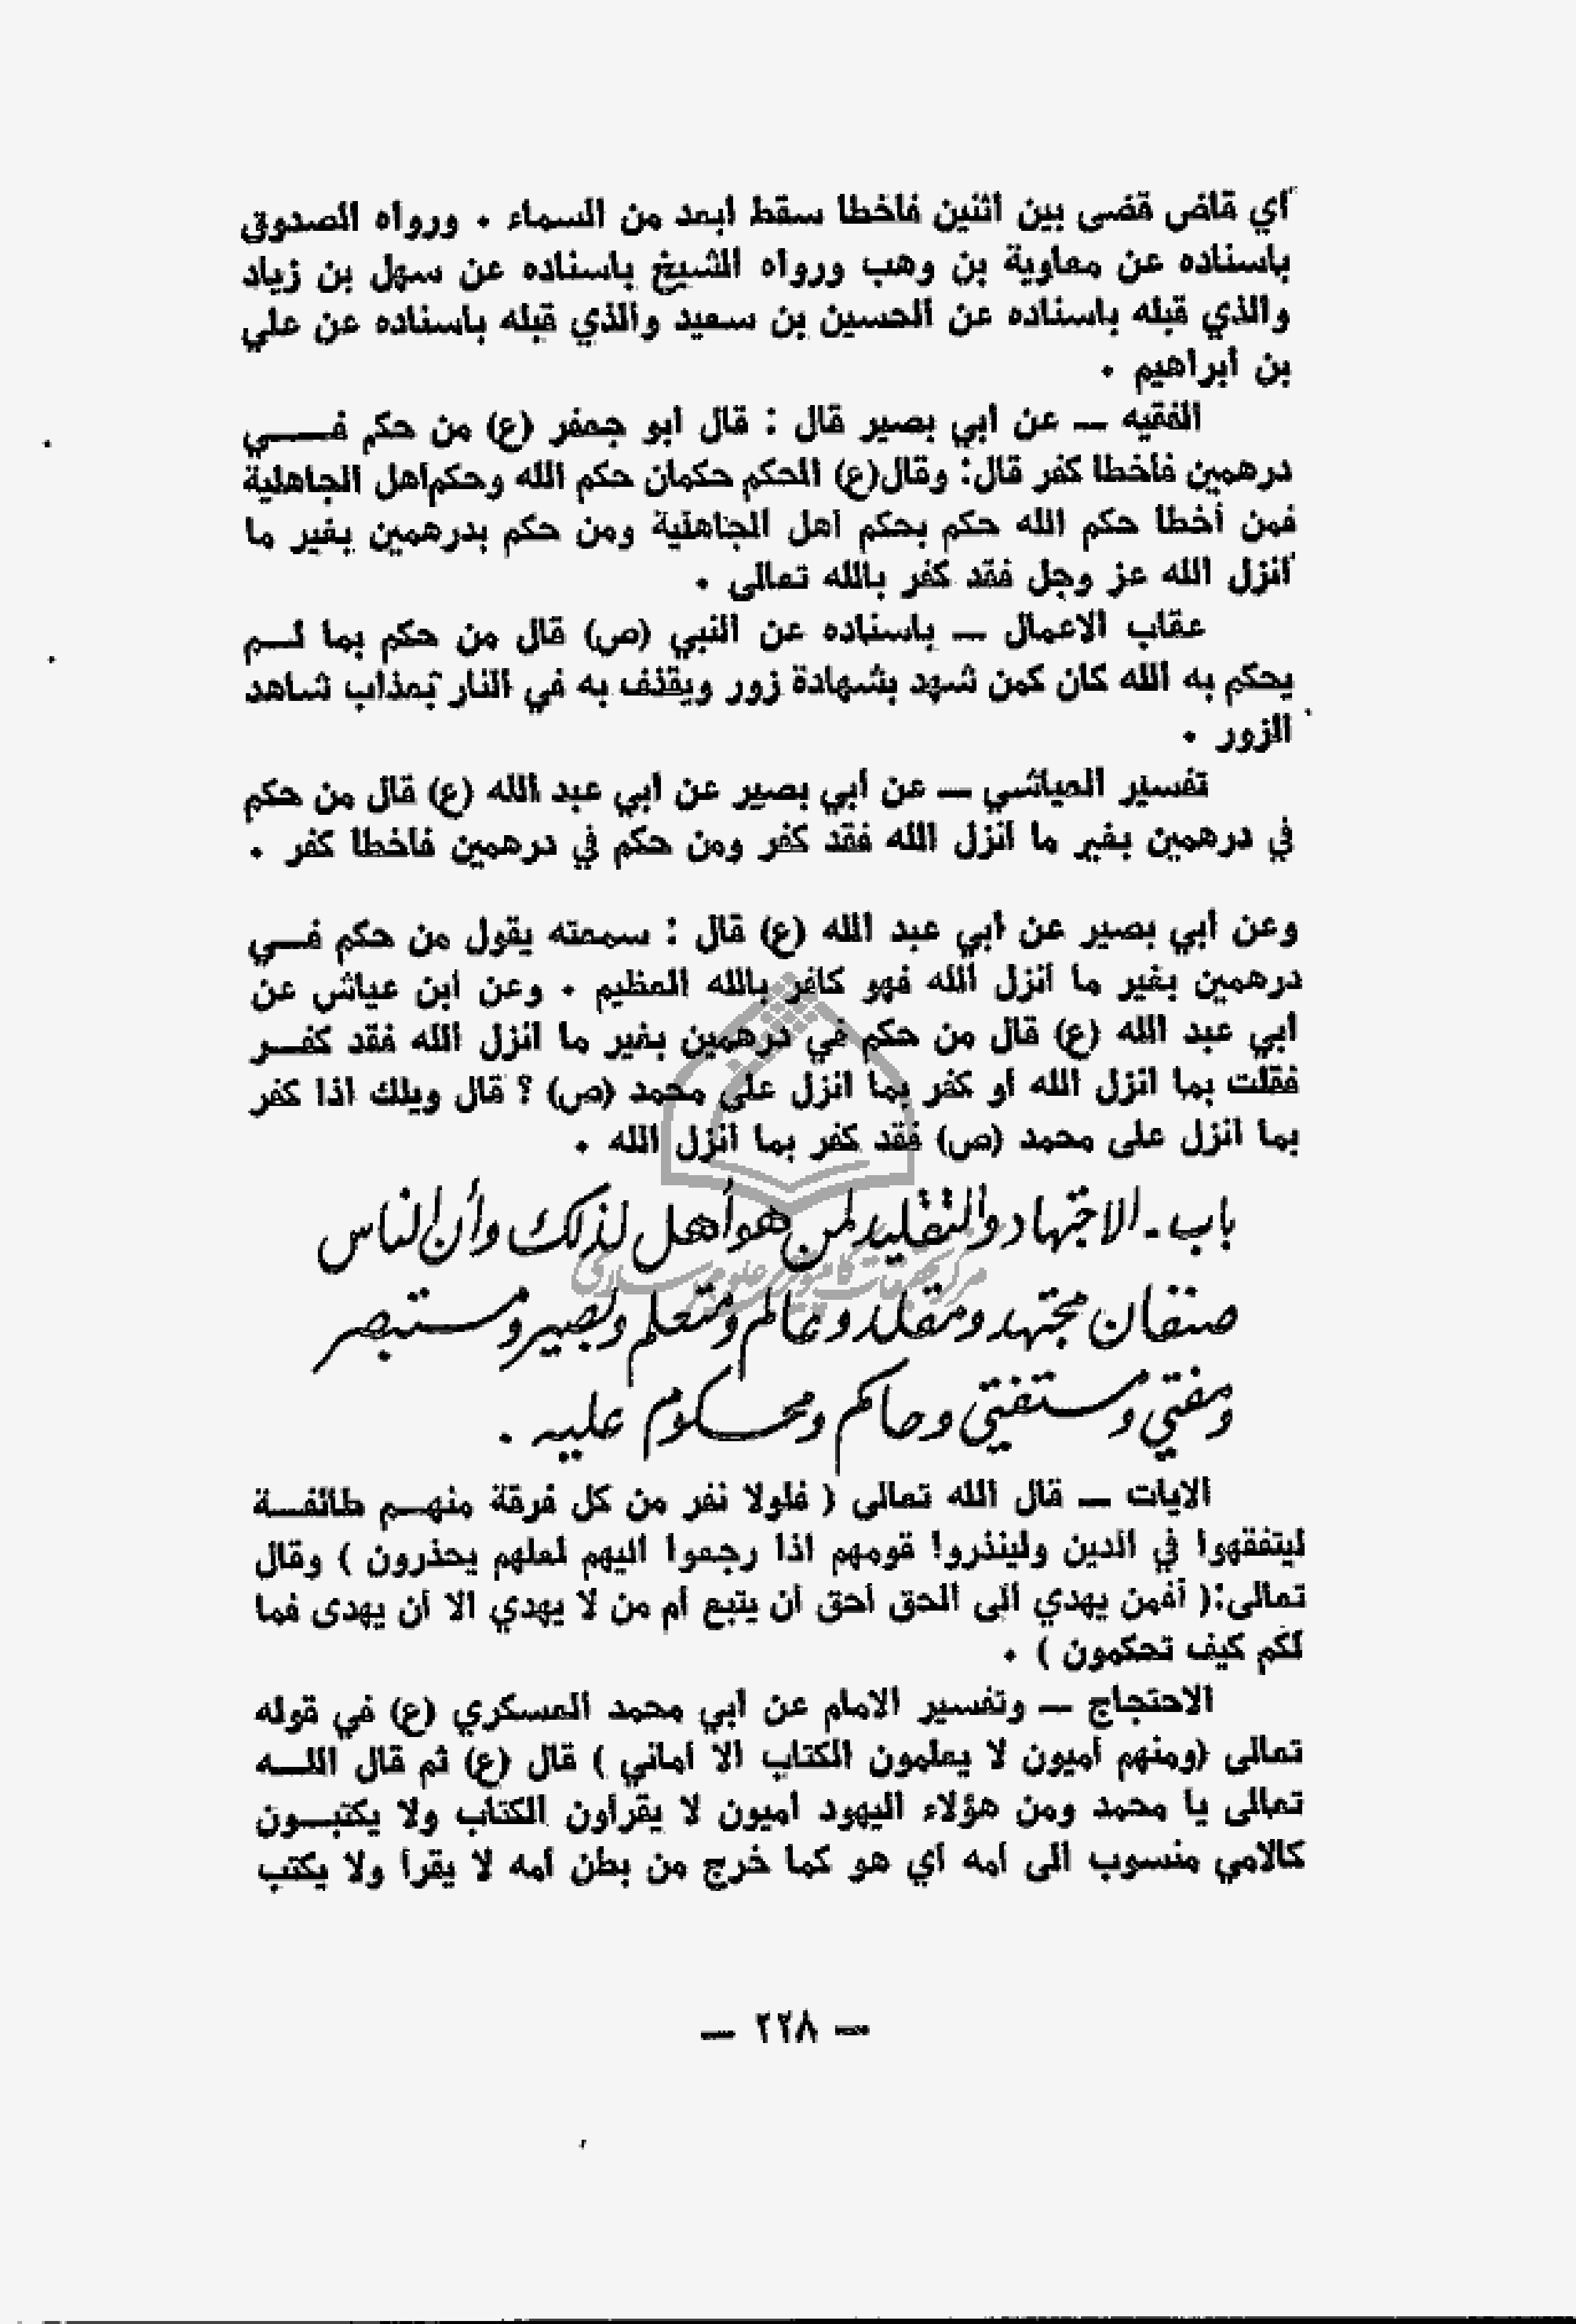 أي قاض قضى بين اثنين فاخطا سقط ابعد من السماء . ورواه الصدوق
باسناده عن معاوية بن وهب ورواه الشيخ باسناده عن سهل بن زياد
والذي قبله باسناده عن الحسين بن سعيد والذي قبله باسناده عن علي
بن ابراهيم .
الفقيه — عن ابي بصير قال : قال ابو جعفر (ع) من حكم فـــي
درهمين فاخطا كفر قال: وقال(ع) الحكم حكمان حكم الله وحكم اهل الجاهلية
فمن أخطا حكم الله حكم بحكم اهل الجاهلية ومن حكم بدرهمين بغير ما
انزل الله عز وجل فقد كفر بالله تعالى .
عقاب الاعمال — باسناده عن النبي (ص) قال من حكم بما لــم
يحكم به الله كان كمن شهد بشهادة زور ويقذف به في النار بعذاب شاهد
الزور .
تفسير العياشي — عن ابي بصير عن ابي عبد الله (ع) قال من حكم
في درهمين بغير ما انزل الله فقد كفر ومن حكم في درهمين فاخطا كفر .
وعن ابي بصير عن ابي عبد الله (ع) قال : سمعته يقول من حكم فــي
درهمين بغير ما انزل الله فهو كافر بالله العظيم . وعن ابن عياش عن
ابي عبد الله (ع) قال من حكم في درهمين بغير ما انزل الله فقد كفــر
فقلت بما انزل الله او كفر بما انزل على محمد (ص) ؟ قال ويلك اذا كفر
بما انزل على محمد (ص) فقد كفر بما انزل الله .
باب - الاجتهاد والتقليد لمن هو أهل لذلك وأن الناس
صنفان مجتهد ومقلد وعالم ومتعلم وبصير ومستبصر
ومفتي ومستفتي وحاكم ومحكوم عليه .
الايات — قال الله تعالى ( فلولا نفر من كل فرقة منهــم طائفــة
ليتفقهوا في الدين ولينذروا قومهم اذا رجعوا اليهم لعلهم يحذرون ) وقال
تعالى:( أفمن يهدي الى الحق أحق أن يتبع أم من لا يهدي الا أن يهدى فما
لكم كيف تحكمون ) .
الاحتجاج — وتفسير الامام عن ابي محمد العسكري (ع) في قوله
تعالى (ومنهم أميون لا يعلمون الكتاب الا أماني ) قال (ع) ثم قال اللــه
تعالى يا محمد ومن هؤلاء اليهود اميون لا يقرأون الكتاب ولا يكتبــون
كالامي منسوب الى أمه أي هو كما خرج من بطن أمه لا يقرأ ولا يكتب
— ٢٢٨ —